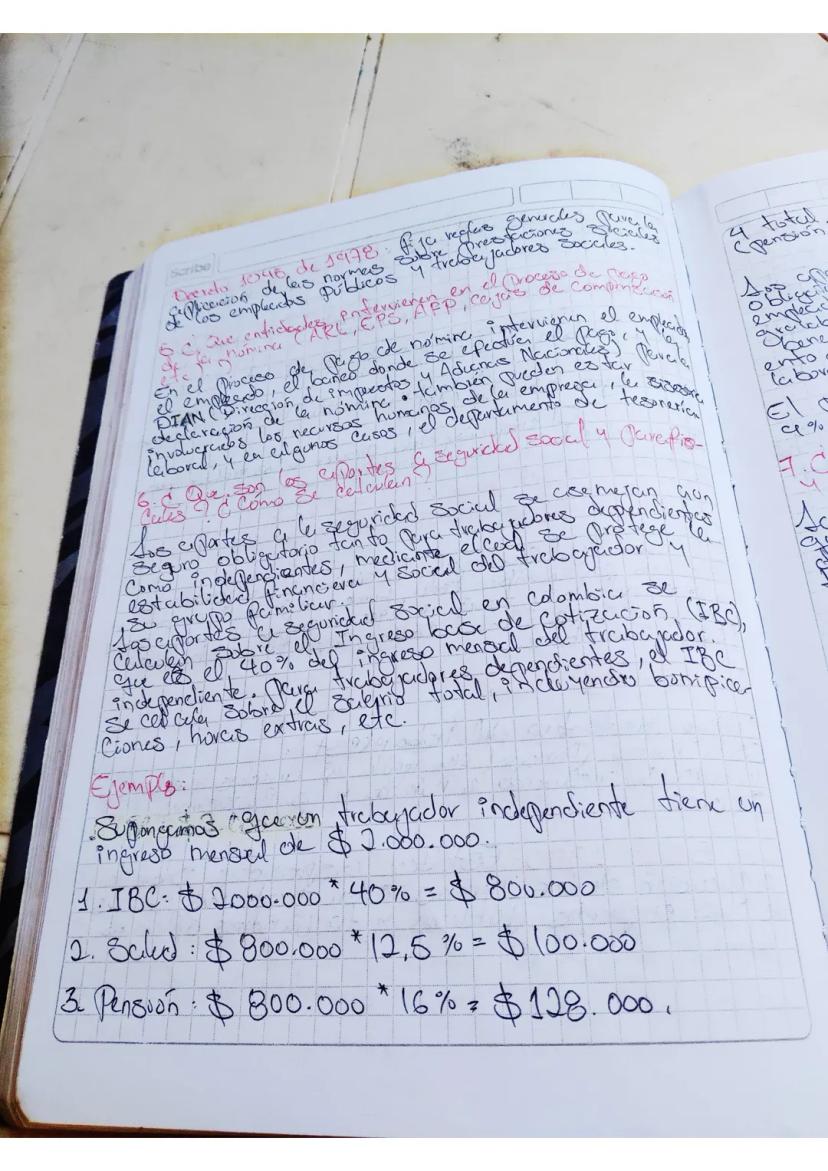 Scribe
Decreto 1045 de 1978: fija reglas generales para la
aplicacion de las normas sobre Prestaciones Sociales
de los empleados públicos y trabajadores Sociales.
5. ¿ Que entidades intervienen en el Proceso de Pago
de la nómina (ARL, EPS, AFP, cajas de compensación
etc.)?
En el Proceso de Pago de nómina intervienen el empleador,
el empleado, el banco donde se efectúa el Pago, y la
DIAN (Dirección de impuestos y Aduanas Nacionales) Para la
declaración de la nómina. también pueden estar
involucrados los recursos humanos de la empresa, la
laboral, y en algunos casos, el departamento de tesoreria
6. ¿ Que son los aportes a seguridad social y Parafis-
cales? ¿ Cómo se calculan?
Los aportes a la seguridad Social se asemejan a un
seguro obligatorio tanto para trabajadores dependientes
como independientes, mediante el cual se Protege la
estabilidad financiera y Social del trabajador y
su grupo familiar.
Los aportes a seguridad social en colombia se
calculan sobre el Ingreso base de Cotización (IBC),
que es el 40% del ingreso mensual del trabajador.
independiente. Para trabajadores dependientes, el IBC
se calcula sobre el salario total, incluyendo bonifica
ciones, horas extras, etc.
Ejemplo:
Supongamos que un trabajador independiente tiene un
ingreso mensual de $ 2.000.000.
1. IBC: $ 2000.000 * 40% = $ 800.000
2. Salud: $ 800.000 * 12,5 % = $ 100.000
3. Pensión: $ 800.000 * 16% = $ 128.000.
4 total
(pensión
Los
obliga
emplea
ento
labor
El
4%
7. ¿
y